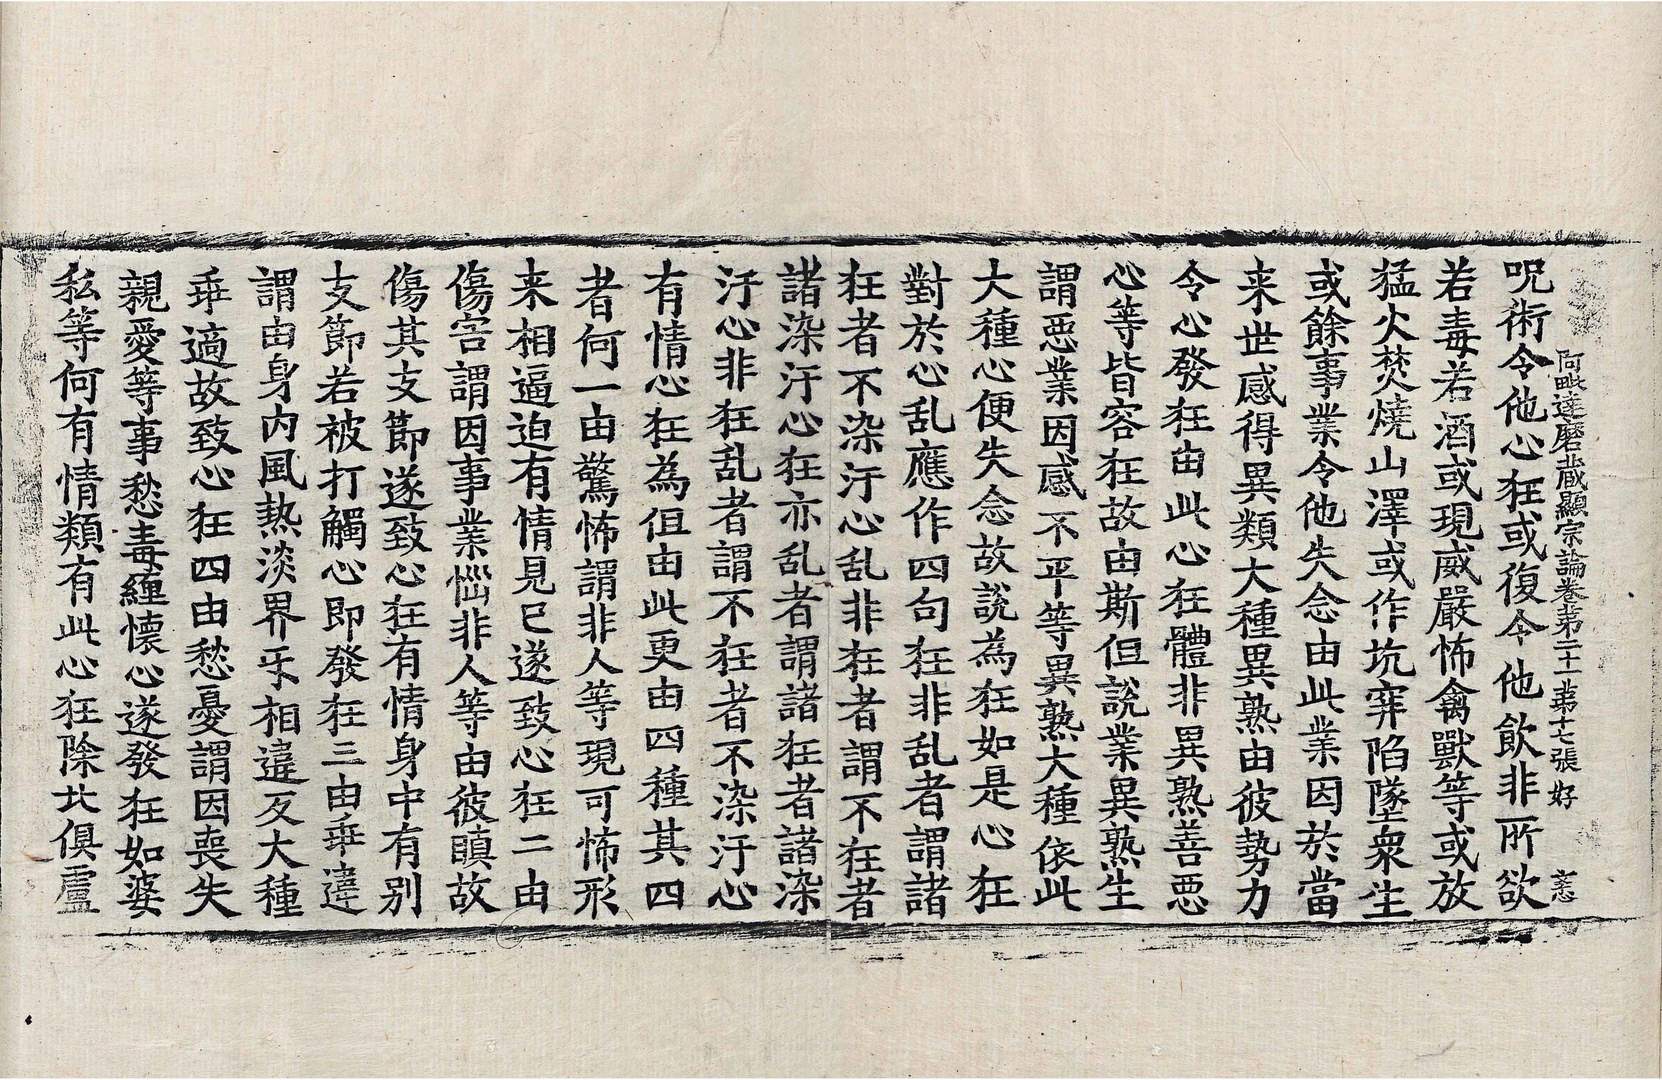 阿毗達磨藏顯宗論卷第二十一 第十七張 好
呪術令他心狂或復令他飲非所欲
若毒若酒或現威嚴怖禽獸等或放
猛火焚燒山澤或作坑穽陷墜衆生
或餘事業令他失念由此業因於當
来世感得異類大種異熟由彼勢力
令心發狂由此心狂體非異熟善惡
心等皆容狂故由斯但說業異熟生
謂惡業因感不平等異熟大種依此
大種心便失念故說為狂如是心狂
對於心乱應作四句狂非乱者謂諸
狂者不染汙心乱非狂者謂不狂者
諸染汙心狂亦乱者謂諸狂者諸染
汙心非狂乱者謂不狂者不染汙心
有情心狂為但由此更由四種其四
者何一由驚怖謂非人等現可怖形
来相逼迫有情見已遂致心狂二由
傷害謂因事業惱非人等由彼瞋故
傷其支節遂致心狂有情身中有別
支節若被打觸心即發狂三由乖違
謂由身內風熱淡界乎相違反大種
乖適故致心狂四由愁憂謂因喪失
親愛等事愁毒纏懷心遂發狂如婆
私等何有情類有此心狂除北俱盧